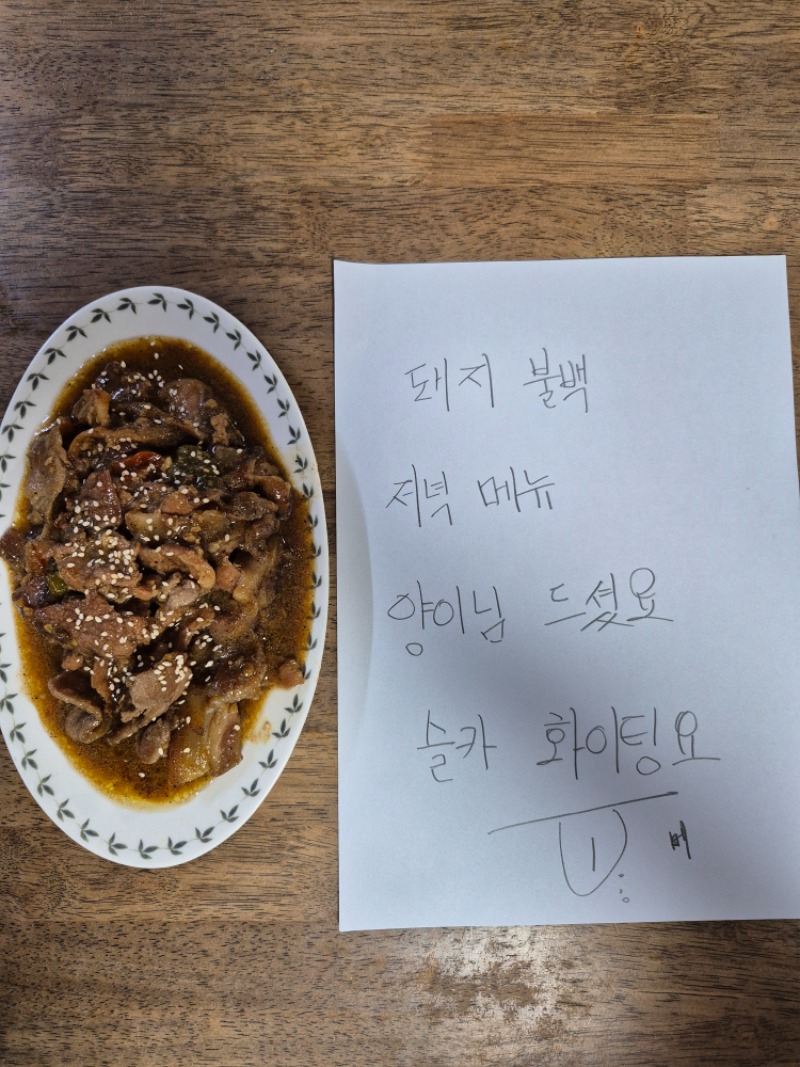 돼지 불백
저녁 메뉴
양이님 드셨요
슬카 화이팅요
메